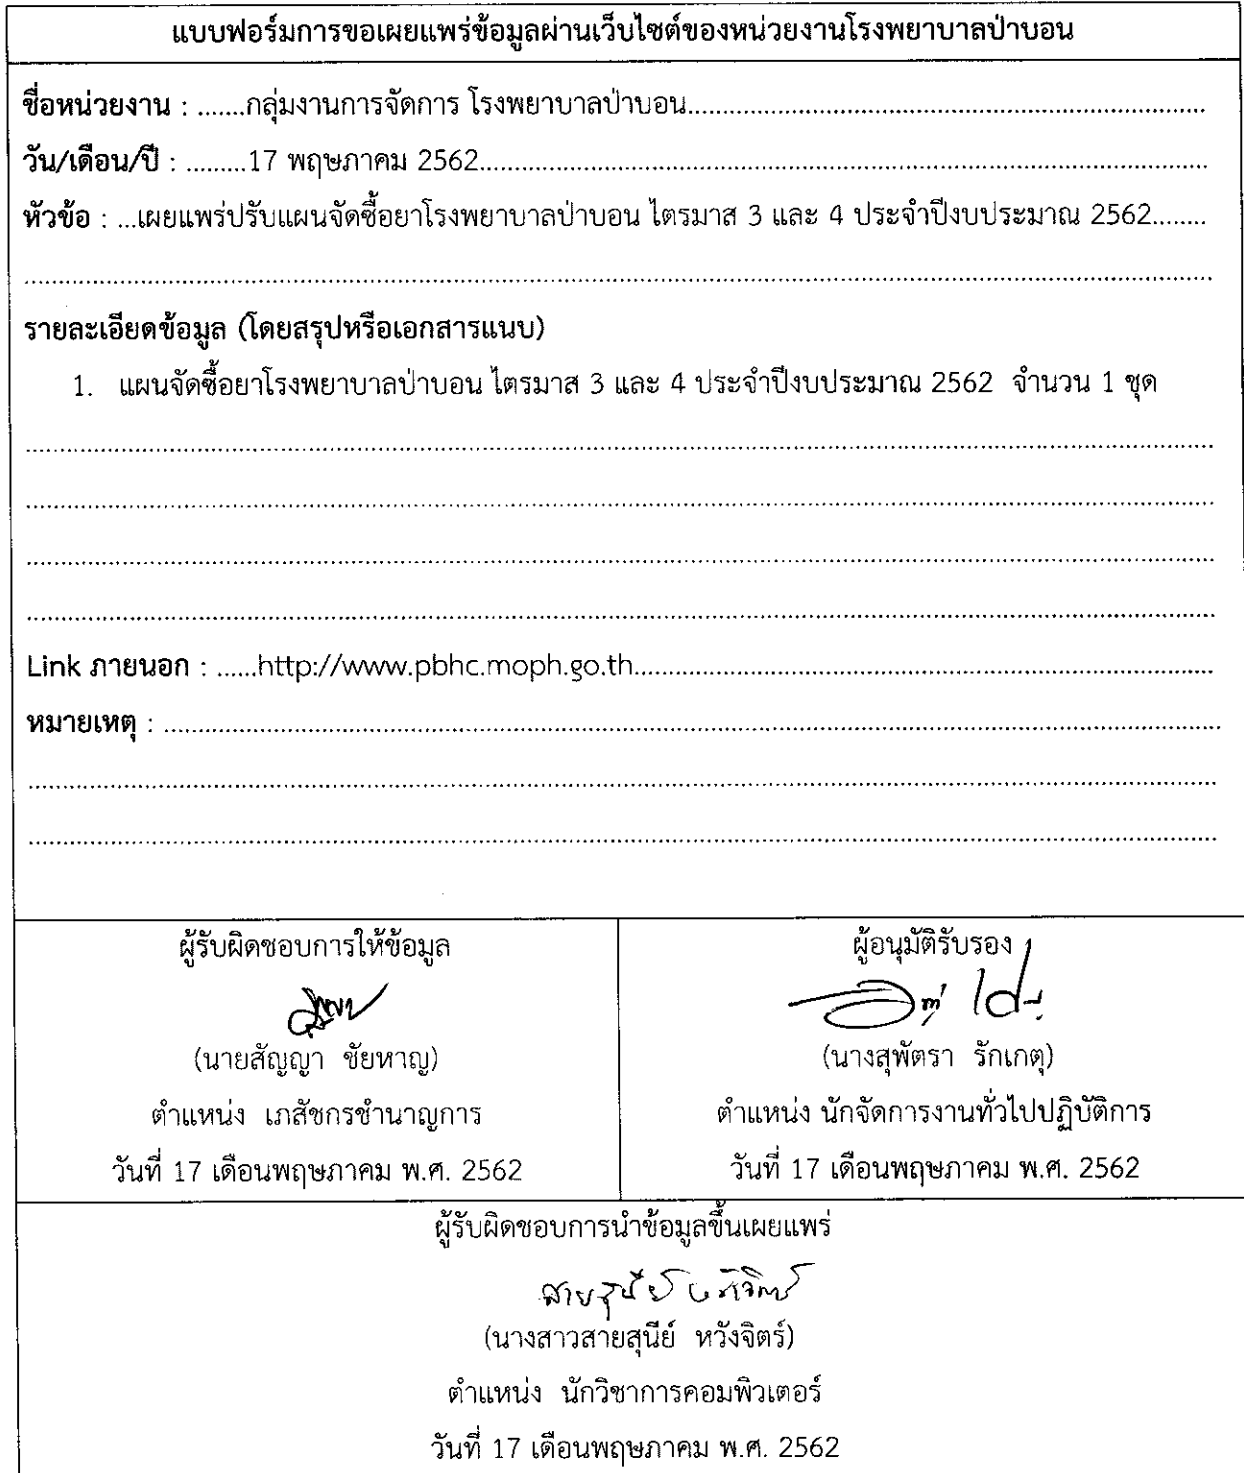 แบบฟอร์มการขอเผยแพร่ข้อมูลผ่านเว็บไซต์ของหน่วยงานโรงพยาบาลป่าบอน
ชื่อหน่วยงาน : .......กลุ่มงานการจัดการ โรงพยาบาลป่าบอน..........
วัน/เดือน/ปี : .........17 พฤษภาคม 2562..........
หัวข้อ : ...เผยแพร่ปรับแผนจัดซื้อยาโรงพยาบาลป่าบอน ไตรมาส 3 และ 4 ประจำปีงบประมาณ 2562........
รายละเอียดข้อมูล (โดยสรุปหรือเอกสารแนบ)
1. แผนจัดซื้อยาโรงพยาบาลป่าบอน ไตรมาส 3 และ 4 ประจำปีงบประมาณ 2562 จำนวน 1 ชุด
Link ภายนอก : ......http://www.pbhc.moph.go.th..........
หมายเหตุ : ..........
ผู้รับผิดชอบการให้ข้อมูล
(นายสัญญา ชัยหาญ)
ตำแหน่ง เภสัชกรชำนาญการ
วันที่ 17 เดือนพฤษภาคม พ.ศ. 2562
ผู้อนุมัติรับรอง
(นางสุพัตรา รักเกตุ)
ตำแหน่ง นักจัดการงานทั่วไปปฏิบัติการ
วันที่ 17 เดือนพฤษภาคม พ.ศ. 2562
ผู้รับผิดชอบการนำข้อมูลขึ้นเผยแพร่
สายสุนีย์ หวังจิตร์
(นางสาวสายสุนีย์ หวังจิตร์)
ตำแหน่ง นักวิชาการคอมพิวเตอร์
วันที่ 17 เดือนพฤษภาคม พ.ศ. 2562